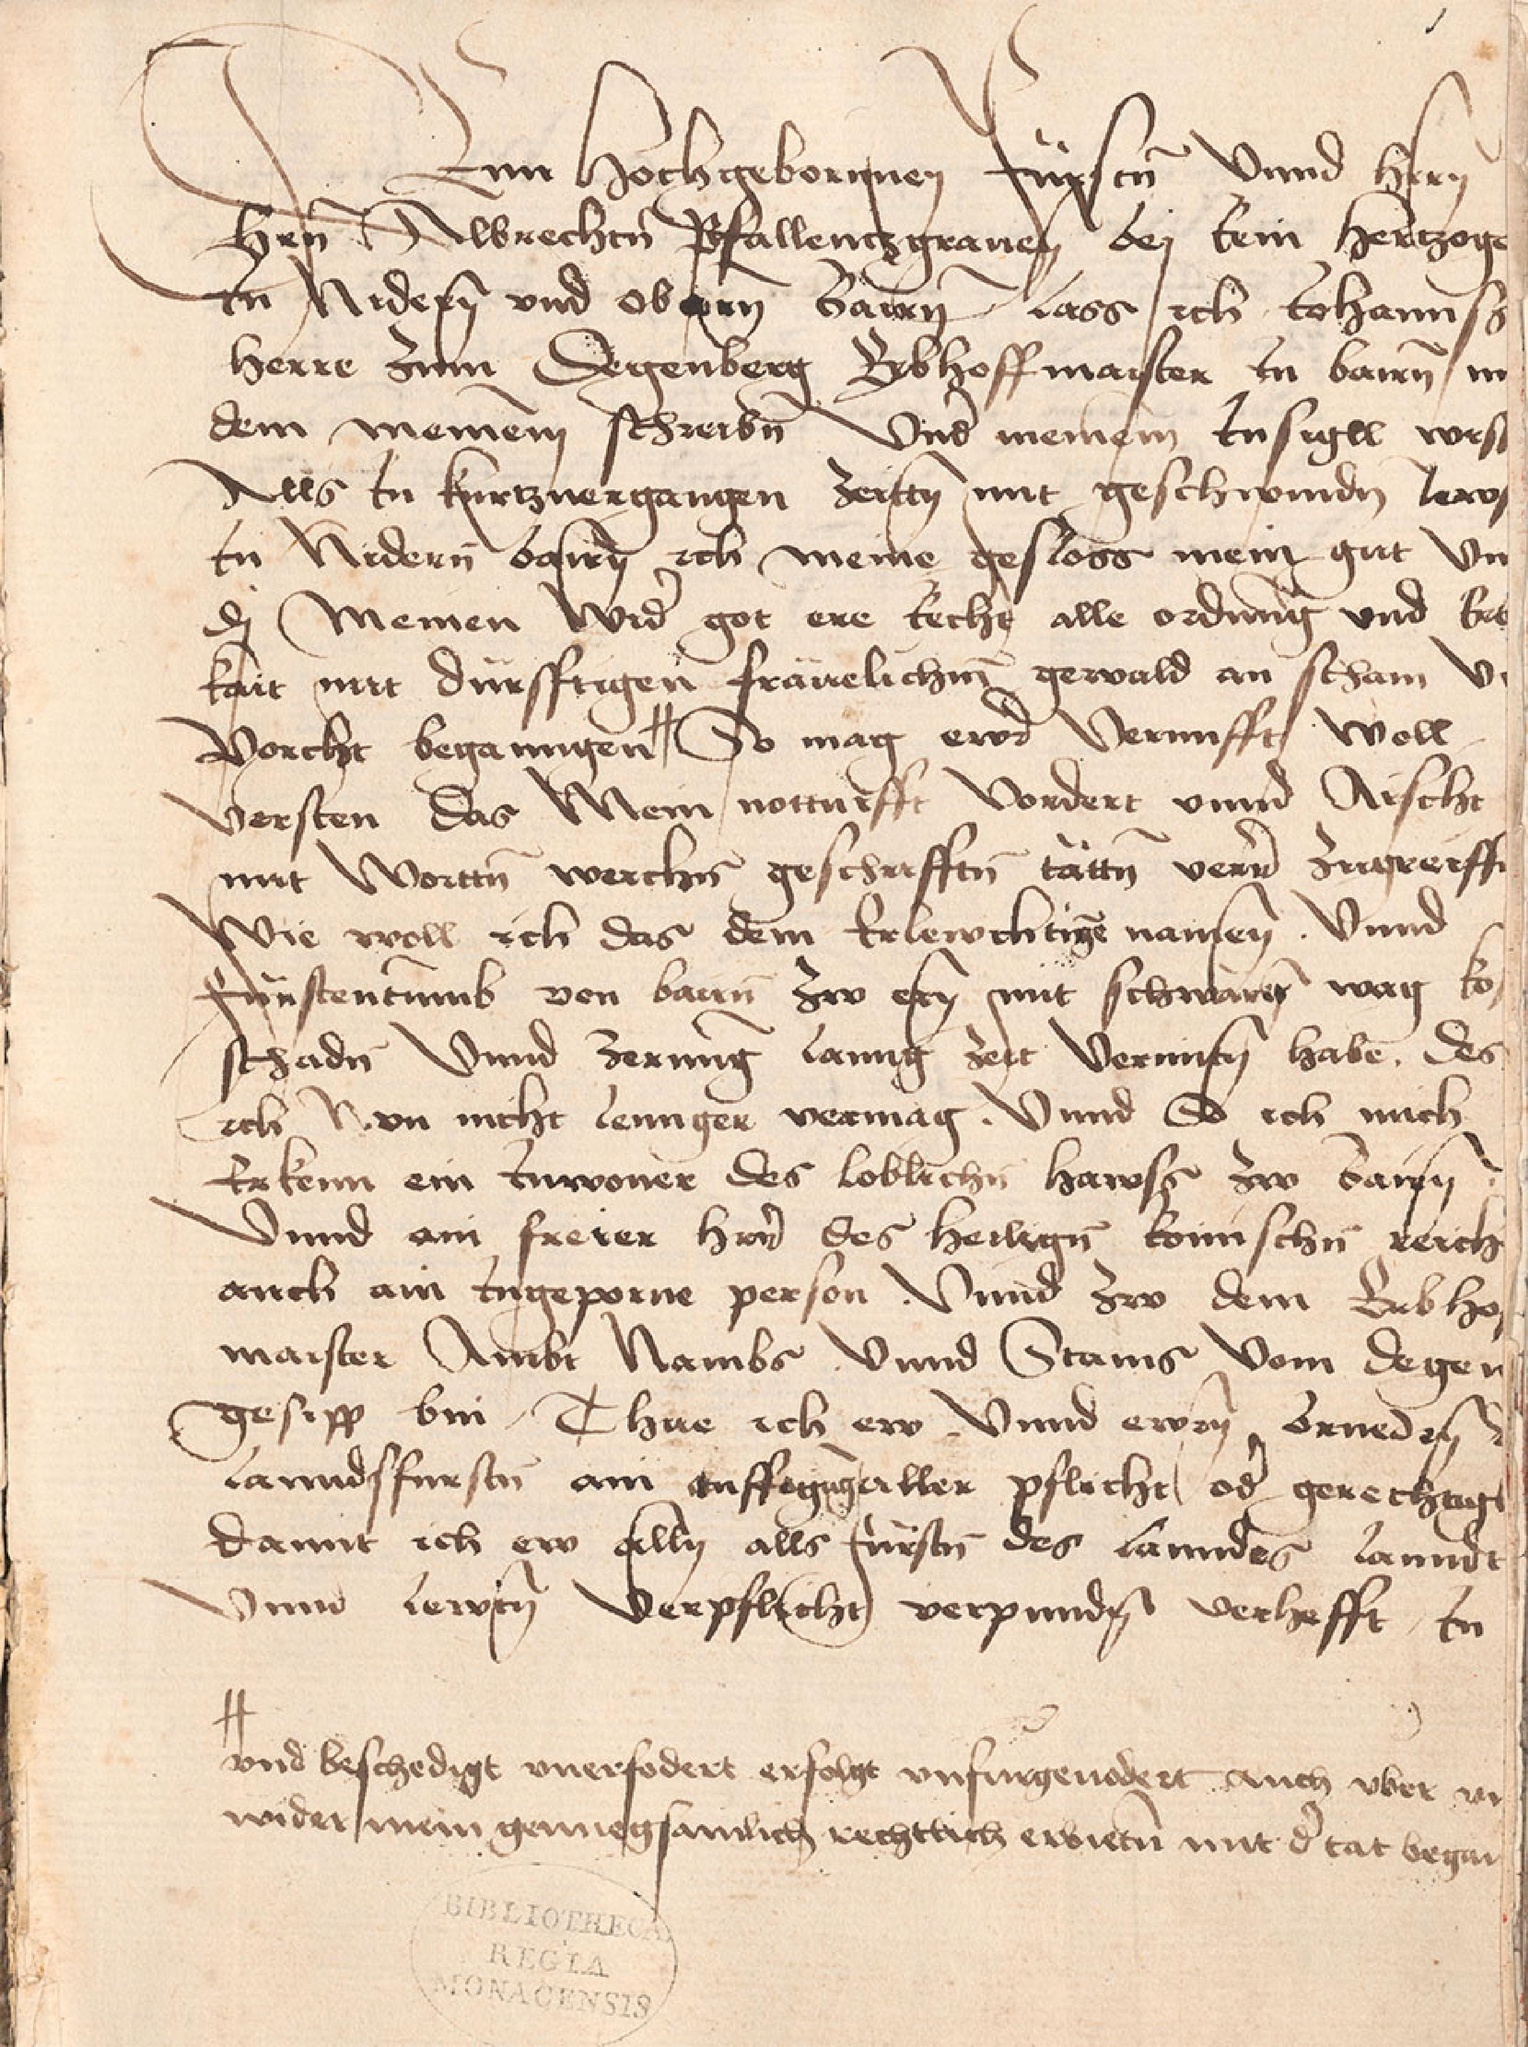 Dem Hochgebornnen Fürstn̄ Vnnd Hern
Hern̄ Albrechtn̄ Pfallenczgrauen bej Rein Hertzoge
In Nidern vnd obern Bairn lass ich Johanns
herre zum Degenberg Erbhoffmaister In bairn mi
dem meinem schreibn̄ Vnd meinem Insigll wiss
Alls In kurtzuergangen zeittn mit geschwindn lews
In Nidern bairn ich meine gesloss mein gut Vn
dj Meinen Wider got ere Recht alle ordnūng vnd
kait mit dürfftigen fräuelichm̄ gewald an scham V
Vorcht beganngen # So mag ewr Vernufft Woll
Versten das Mein notturfft Vordert vnnd Aischt
mit Worttn̄ werchn̄ geschrifftn̄ tättn̄ zugreiff
Wie woll ich das dem Erlewchtigē namen . Vnnd
Fürstentūmb von bairn zw ern mit schwärn wag ko
schadn̄ Vnnd zerūng lanng zeit Vermitn habe . des
ich Nun nicht lennger vermag . Vnnd So ich mich
Erkenn ein Inwoner des loblichn̄ hawss zw Bairn
Vnnd ain freier Herr des heilign̄ Romischn̄ reich
auch ain Ingeporne person . Vnnd zw dem Erbho
maister Ambt Nambs Vnnd Stams Vom degen
gesipp bin . Thue ich ew Vnnd ewrn Bruedern
lanndsfurstn̄ ain auffsagūng aller pflicht oder gerechtigk
damit ich ew alln alls fürstn̄ des lanndes lanndt
Vnnd lewtn Verpflicht verpunden verhefft In
# vnd beschedigt vneruodert erfolgt vnfurgeuodert auch vber vn
wider mein genuegsamlich rechtlich erbietn̄ mit der tat began
BIBLIOTHECA
REGIA
MONACENSIS